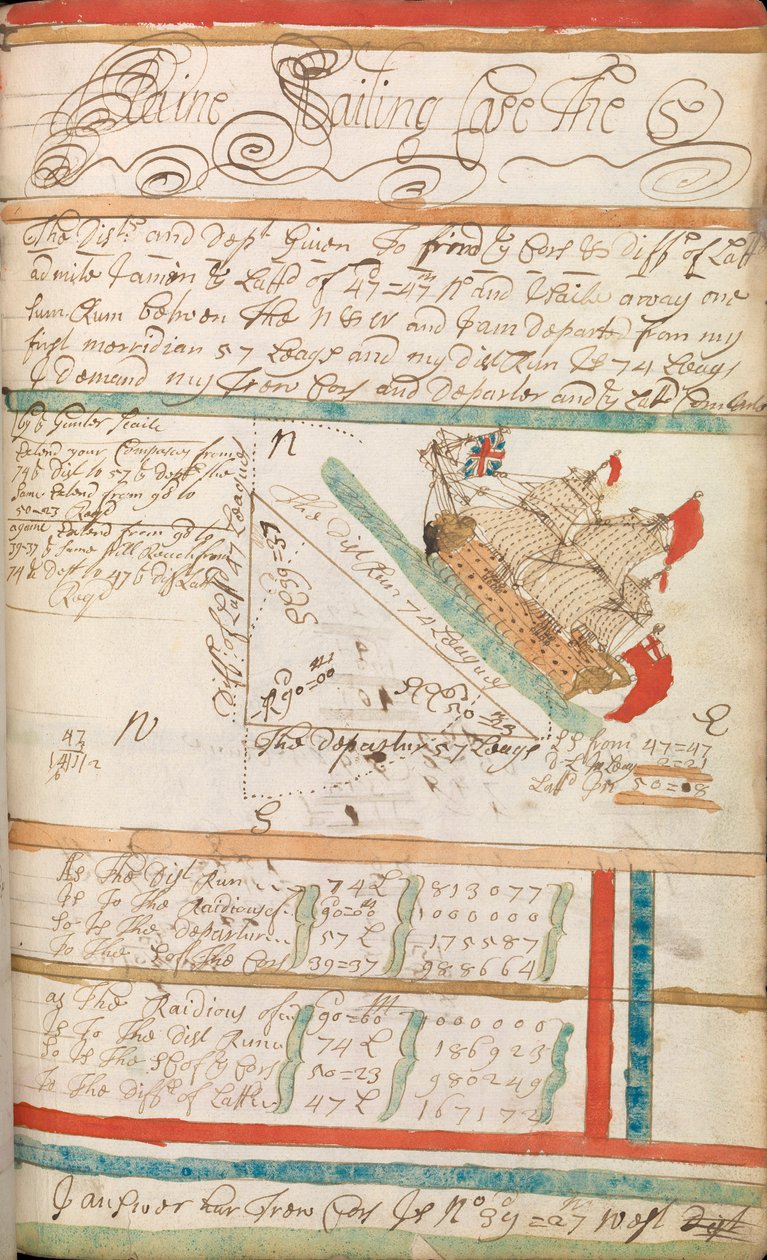 Plaine Sailing Case The 5
The Dist: and Dept Given To finnd ye Cors & Diffe of Lattd
admite I am in ye Lattd of 47=47 No and I Saile away one
sum Rum betwen The N & W and I am Departed from my
first merridian 57 Leags and my Dist Run Is 74 Leags
I Demand my Trew Cors and Departer and ye Latt
by ye Gunter Scaile
Extend your Compasses from
74 ye Dist to 57 ye Dept the
Same Extend from 90 to
50=23 Reqd
againe Extend from 90 to
39=37 ye Same will Reach from
74 ye Dept to 47 ye Dif Latt
Reqd
N
The Dist Run 74 Leagues
Diffr: of Lattd 47 Leagues
R 90=00
W
E
47
The Departur 57 Leags
from 47=47
2=21
Lattd In 50=08
S
As The Dist Run 74 L 813077
Is To The Raidious of 90=00 1000000
So Is The Departur 57 L 175587
To The S of The Cors 39=37 988664
as The Raidious of 90=00 1000000
Is To The Dist Run 74 L 186923
So Is The S C of ye Cors 50=23 980249
To The Diffe of Latt 47 L 167172
I answer hur Trew Cors Is No 39=27 West